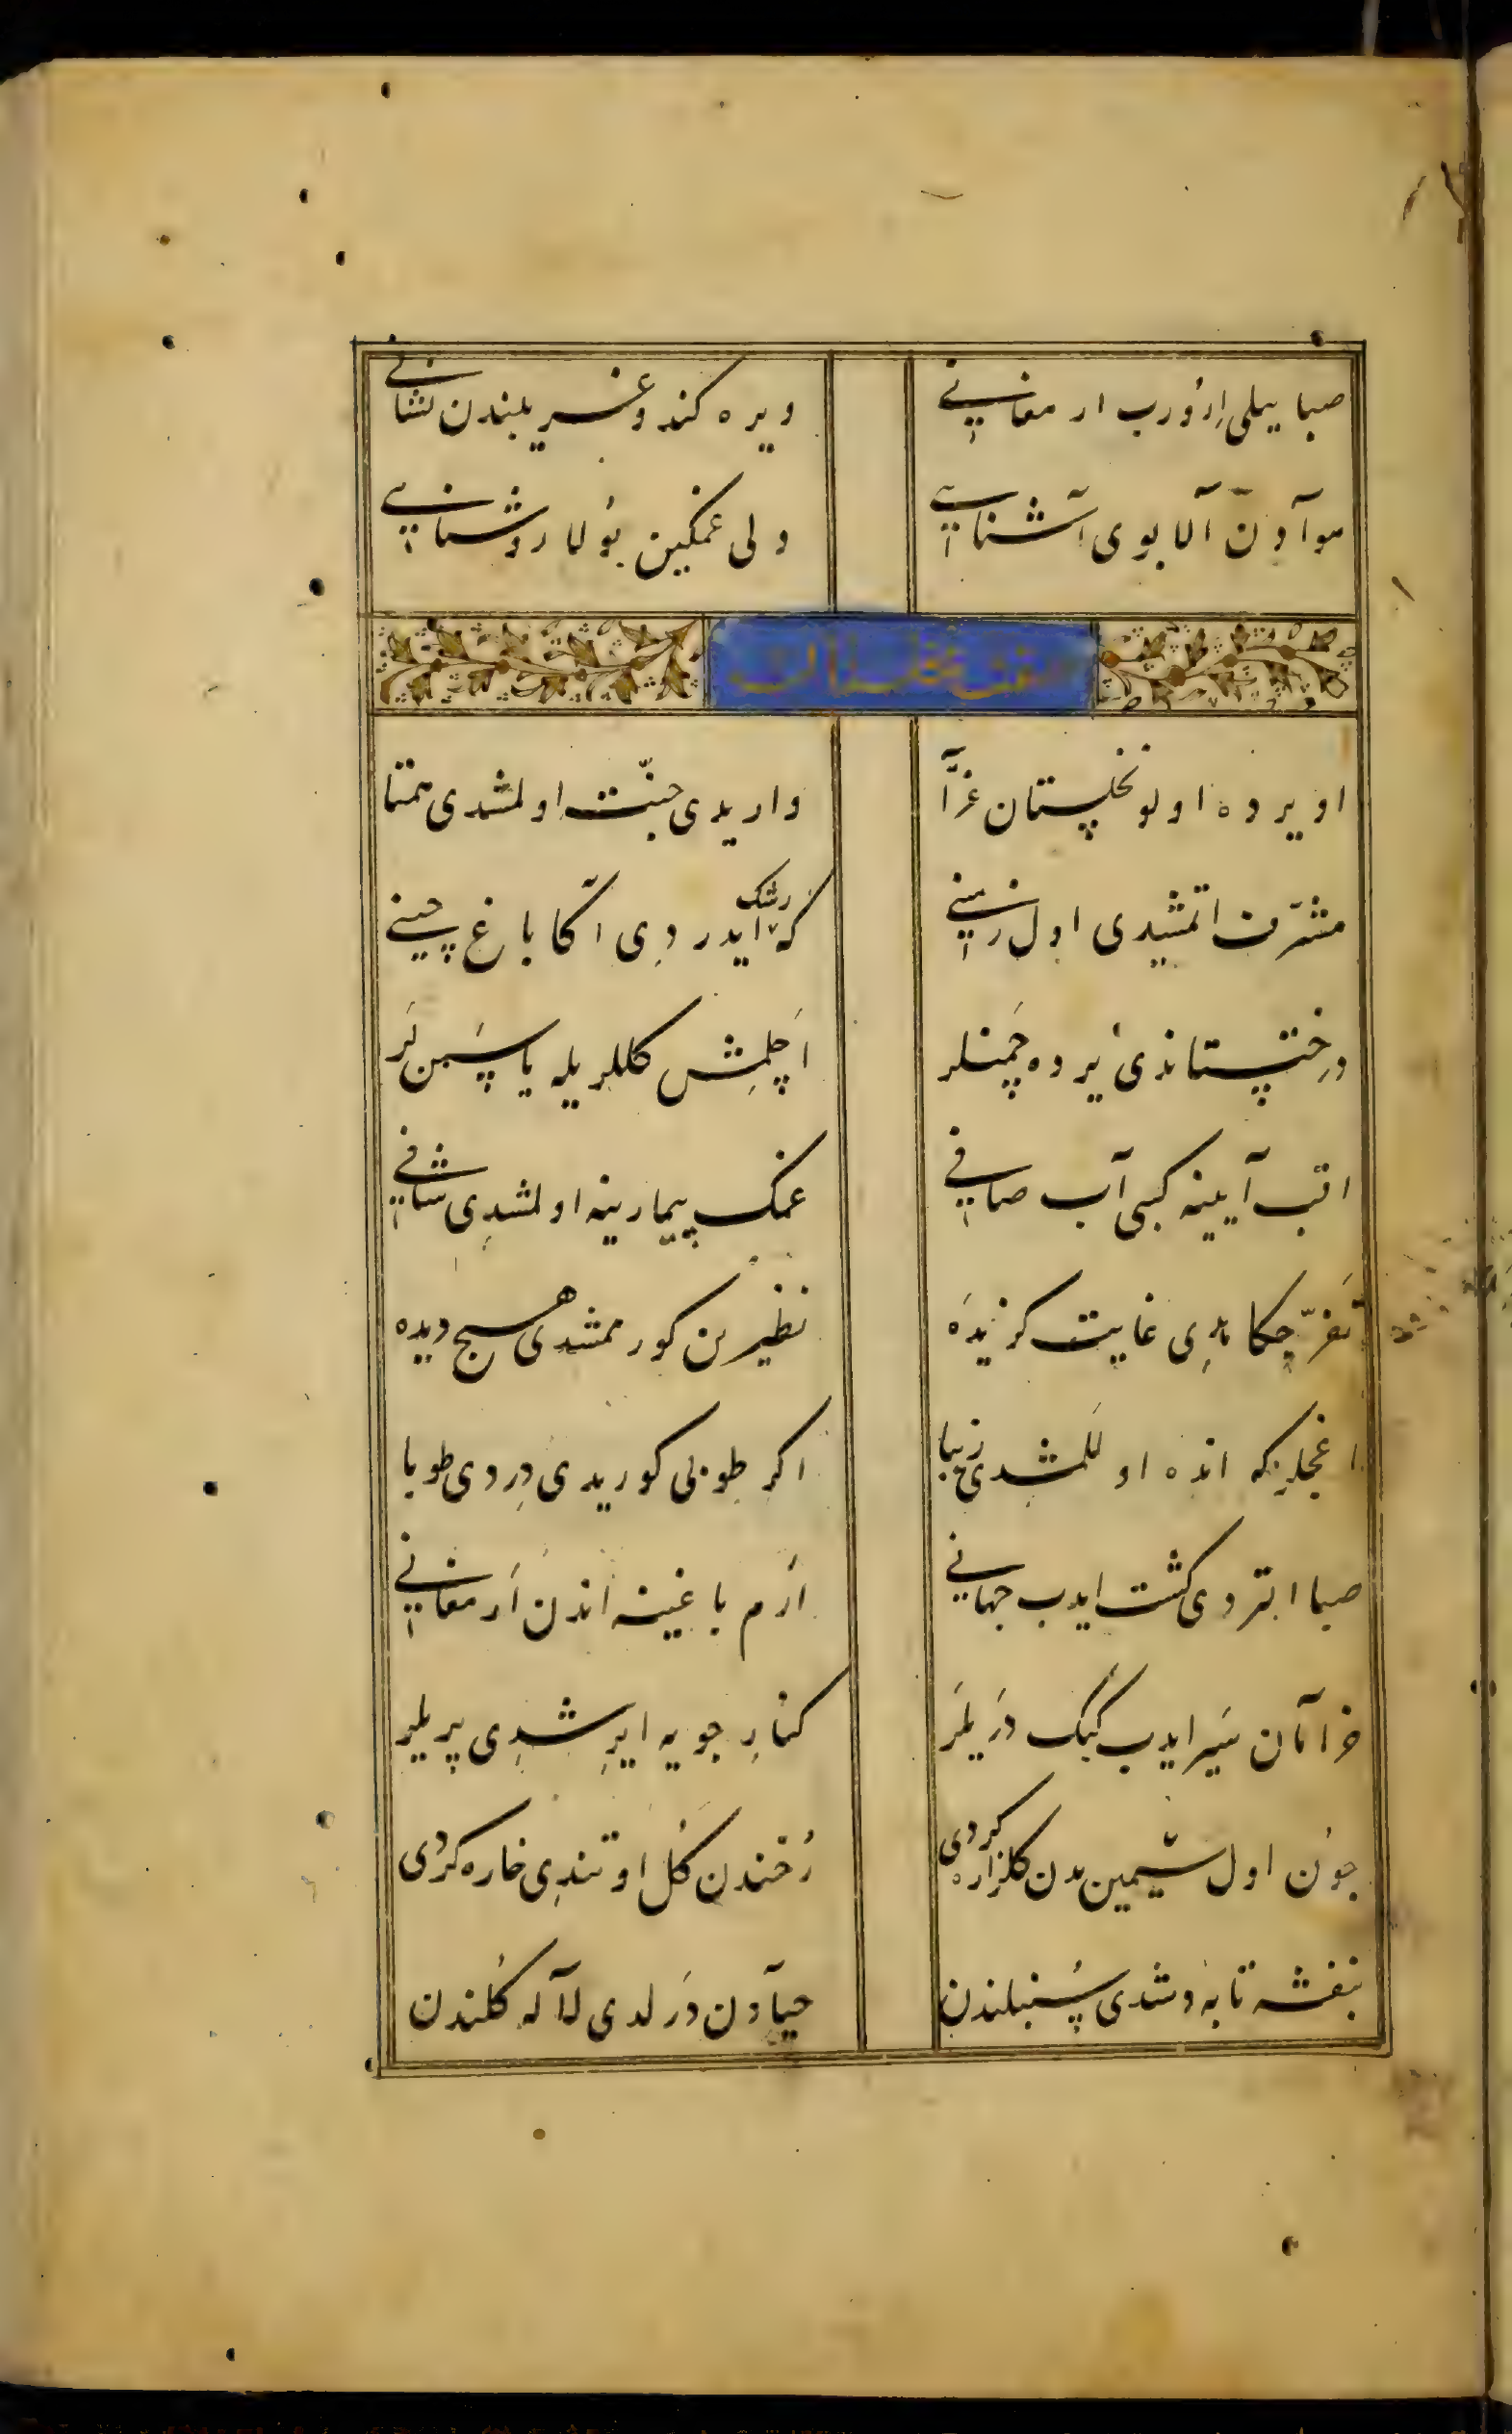 صبا ییلی اِرُورب ار مغانی ویره کندو غریبلندن نشانی
هوآدن آلا بوی آشنایی دلی غمکین بُولا روشنایی
اویرده اولو نخلستان غرّآ واریدی جنّت اولمشدی همتا
مشرّف اتمشیدی اول زمینی که رشک ایدردِی اکا باغ چینی
درختستاندیُ یرده چَمنلر اَچلمِش کللر یله یاسَمن لَر
اتب آیینه کبی آب صافی غمک بیمارینه اولمشدِی شافی
تَفرّجکاهدِی غایت کزیدَه نظیرن کورممشدی هیچ دیده
اغجلرکه انده اولَلمشدِی زیبا اکر طوبی کوریدی دِردی طوبا
صبا ابتردی کشت ایدب جهانی اِرَم باغینه اندَن اَرمغانی
خرامان سَیر ایدب کبک دَرَیلَر کنارِ جویه ایرِشدِی پریلر
چون اول سیمین بدن کلزاره کردی رُخندن کُل اوتندِی خاره کردی
بنفشه تابه دشدی سُنبلندن حیآدن دَرلدی لاله کُلندن